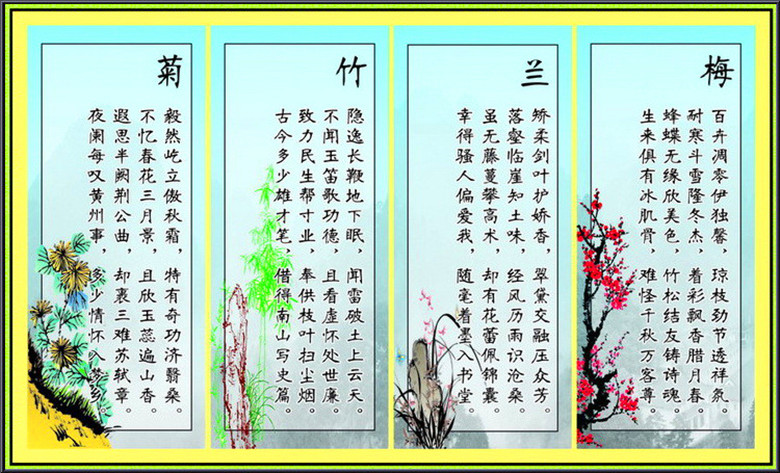 梅
百卉凋零伊独馨，琼枝劲节透祥氛。
耐寒斗雪隆冬杰，着彩飘香腊月春。
蜂蝶无缘欣美色，竹松结友铸诗魂。
生来俱有冰肌骨，难怪千秋万客尊。
兰
娇柔剑叶护娇香，翠黛交融压众芳。
落壑临崖知土味，经风历雨识沧桑。
虽无藤蔓攀高术，却有花蕾佩锦囊。
幸得骚人偏爱我，随毫着墨入书堂。
竹
隐逸长鞭地下眠，闻雷破土上云天。
不闻玉笛歌功德，且看虚怀处世廉。
致力民生帮寸业，奉供枝叶扫尘烟。
古今多少雄才笔，借得南山写史篇。
菊
毅然屹立傲秋霜，特有奇功济翳桑。
不忆春花三月景，且欣玉蕊遍山香。
遐思半阙荆公曲，却裹三难苏轼章。
夜阑每叹黄州事，多少情怀入梦乡。